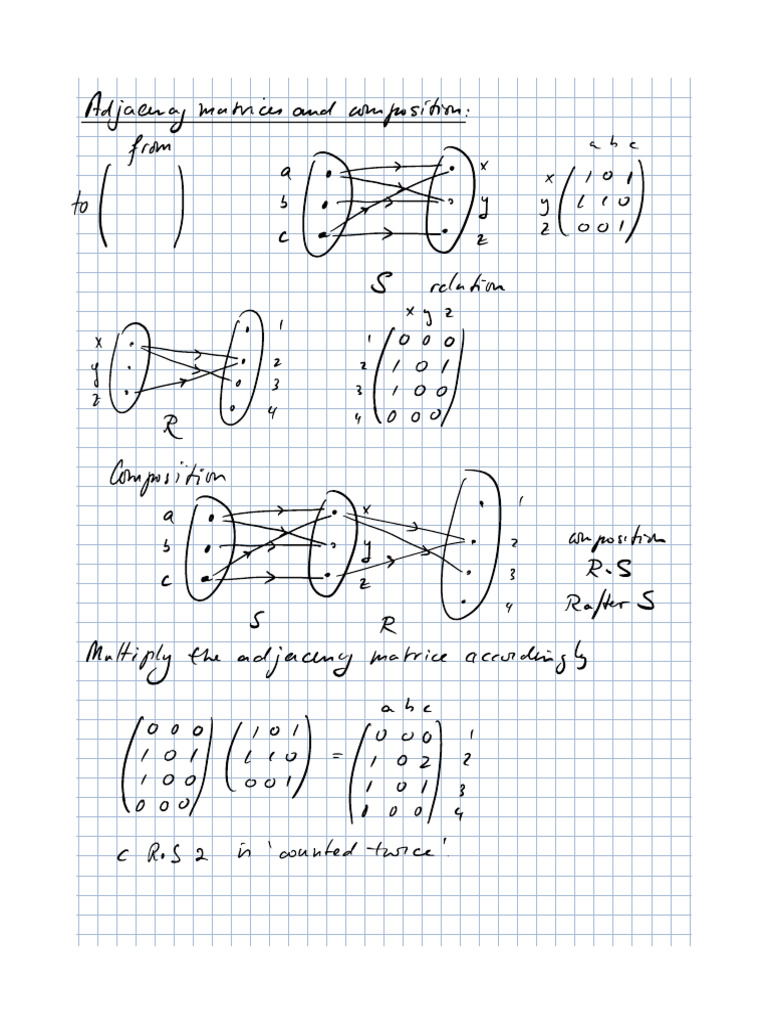 Adjacency matrices and composition:
from
to
a b c
a x x 1 0 1
b y y 1 1 0
c z z 0 0 1
S relation
x y z
x 1 1 0 0 0
y 2 2 1 0 1
z 3 3 1 0 0
4 4 0 0 0
R
Composition
a x 1
b y 2
c z 3
4
S R
composition
R∘S
R after S
Multiply the adjacency matrice accordingly
a b c
0 0 0 1 0 1 0 0 0 1
1 0 1 1 1 0 = 1 0 2 2
1 0 0 0 0 1 1 0 1 3
0 0 0 0 0 0 4
c R∘S 2 is 'counted twice'.